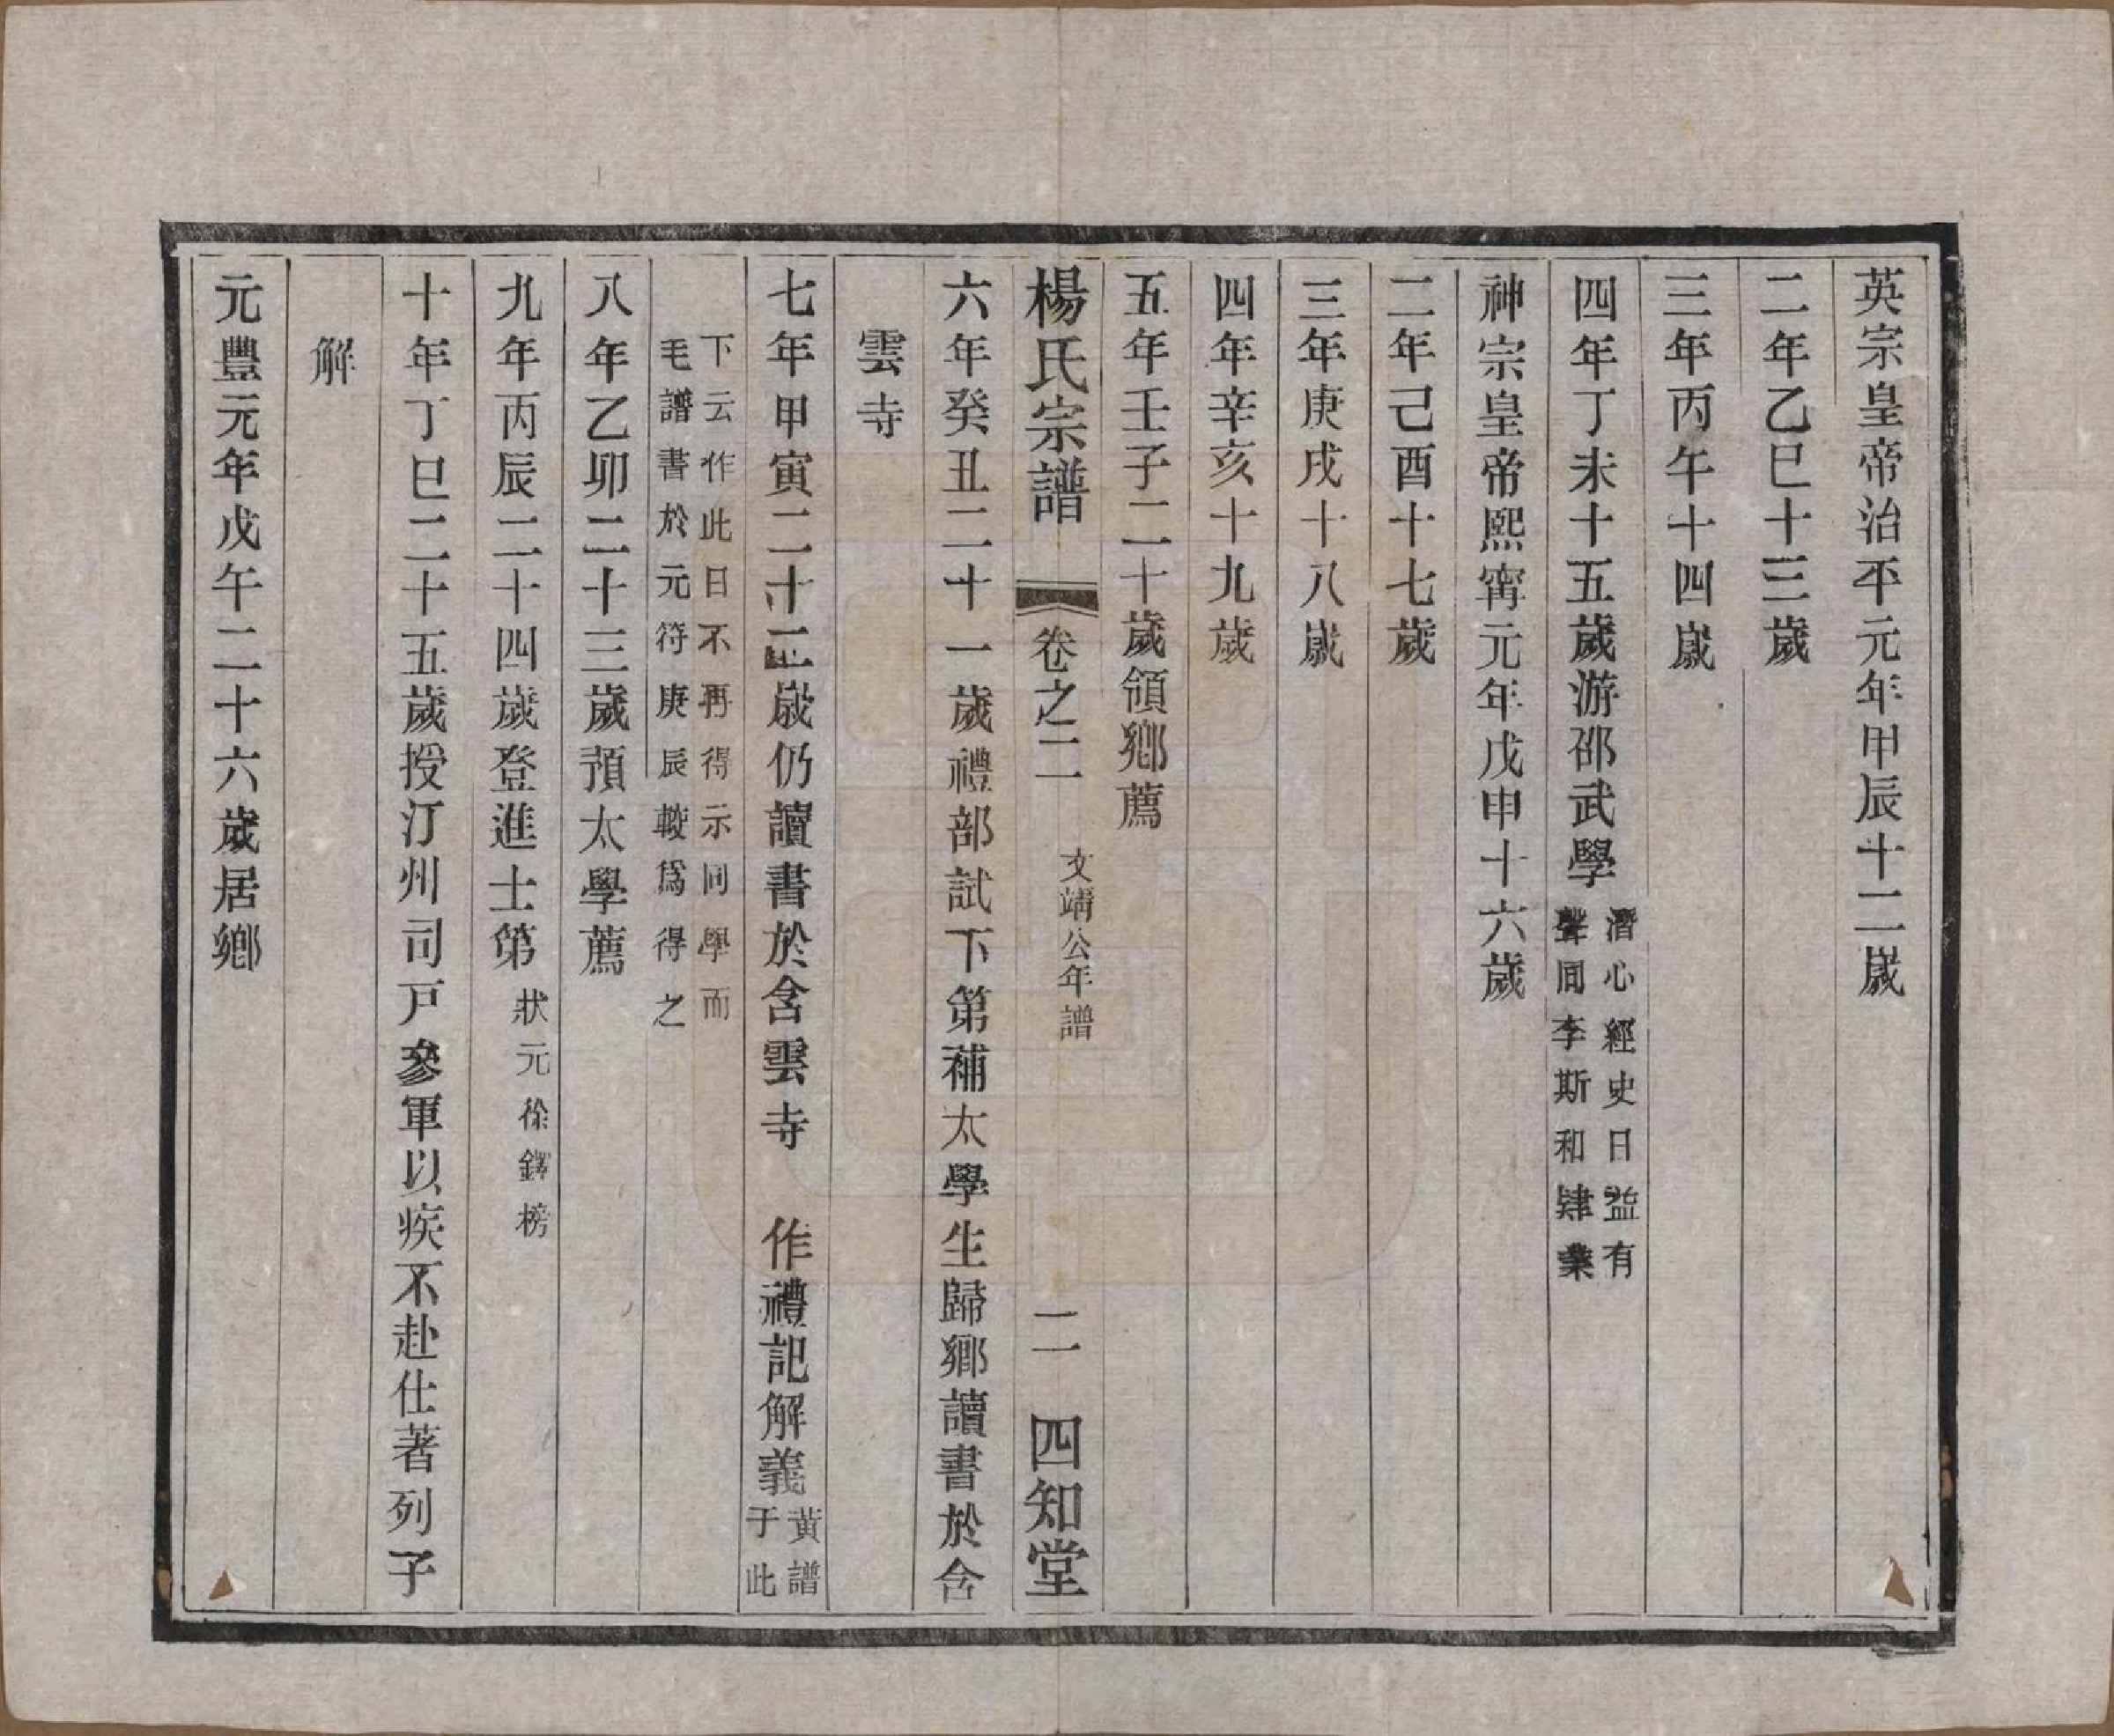 英宗皇帝治平元年甲辰十二歲
二年乙巳十三歲
三年丙午十四歲
四年丁未十五歲游邵武學
潛心經史日益有
聲同李斯和肄業
神宗皇帝熙甯元年戊申十六歲
二年己酉十七歲
三年庚戌十八歲
四年辛亥十九歲
五年壬子二十歲領鄉薦
楊氏宗譜 卷之二 文靖公年譜 二 四知堂
六年癸丑二十一歲禮部試下第補太學生歸鄉讀書於含
雲寺
七年甲寅二十二歲仍讀書於含雲寺 作禮記解義
黃譜
于此
下云作此日不再得示同學而
毛譜書於元符庚辰較爲得之
八年乙卯二十三歲預太學薦
九年丙辰二十四歲登進士第
狀元徐鐸榜
十年丁巳二十五歲授汀州司戸參軍以疾不赴仕著列子
解
元豐元年戊午二十六歲居鄉